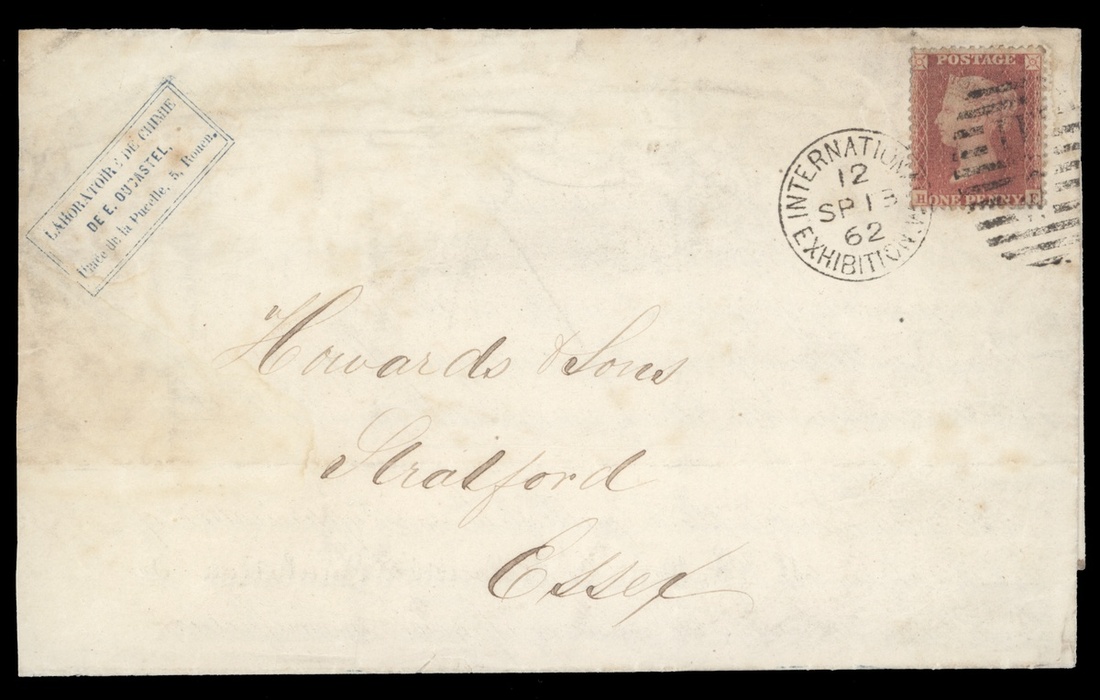 LABORATOIRE DE CHIMIE
DE E. DUCASTEL.
Place de la Pucelle, 5, Rouen.
POSTAGE
H ONE PENNY E
INTERNATION
12
SP 13
62
EXHIBITION.W
Howards & Sons
Stratford
Essex